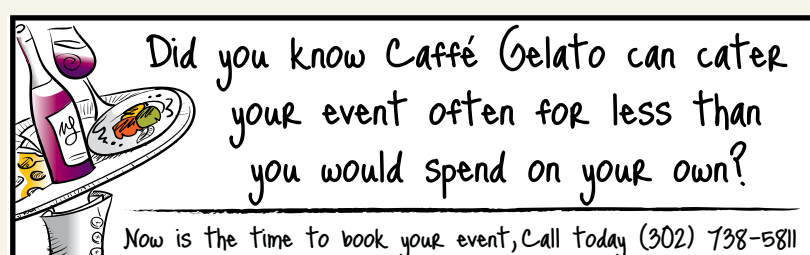 Did you know Caffé Gelato can cater
your event often for less than
you would spend on your own?
Now is the time to book your event, Call today (302) 738-5811